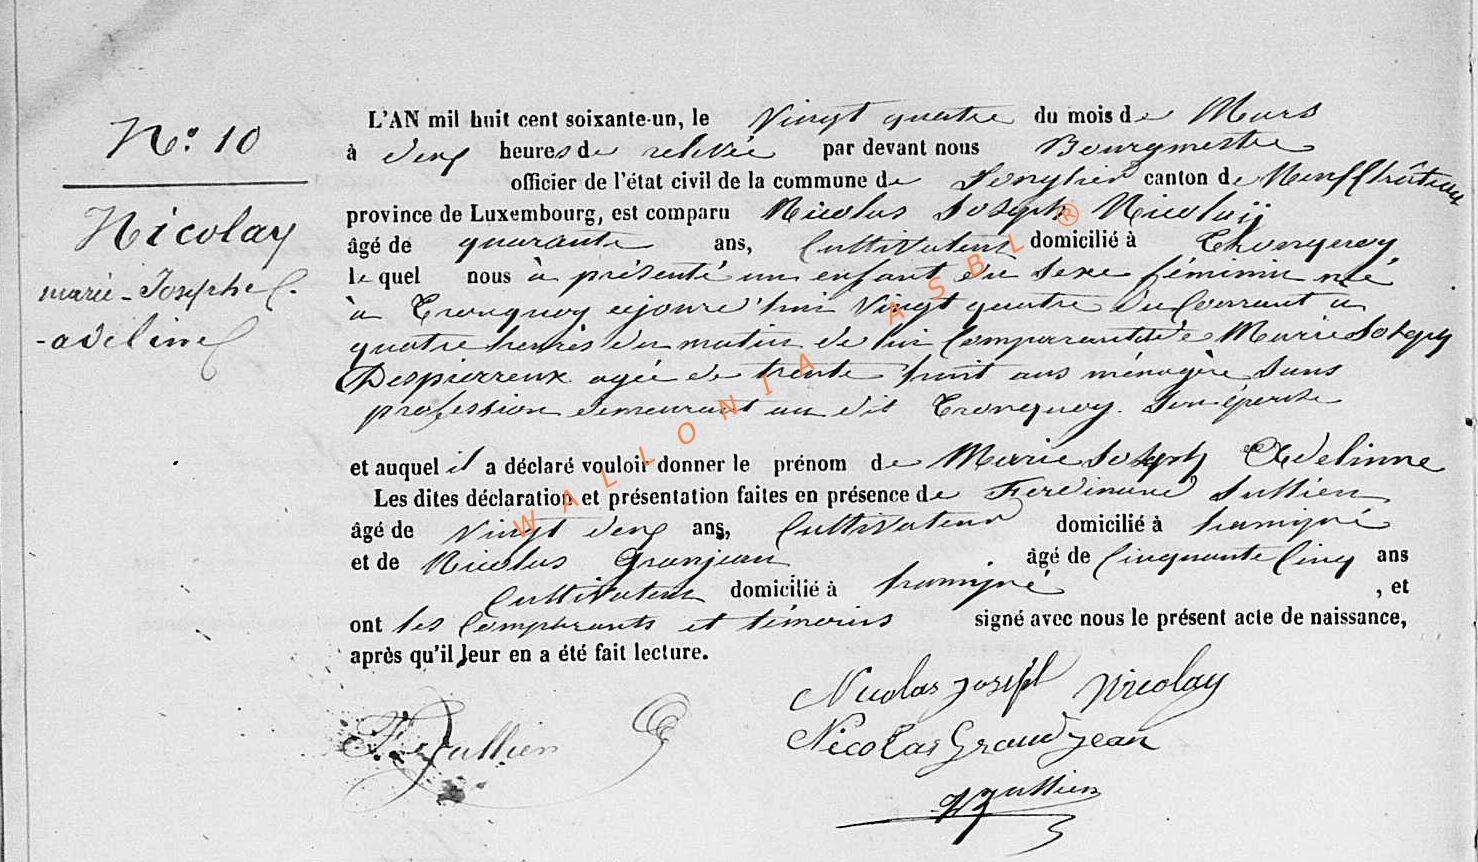 N.º 10
Nicolay
marie-Josephe
-adeline
L'AN mil huit cent soixante-un, le vingt quatre du mois de Mars
à deux heures de relevée par devant nous Bourgmestre
officier de l'état civil de la commune de Longlier canton de Neuffchâteau
province de Luxembourg, est comparu Nicolas Joseph Nicolaÿ
âgé de quarante ans, Cultivateur domicilié à Tronquoy
lequel nous à présenté un enfant du sexe féminin né
à Tronquoy cejourd'hui vingt quatre du Courrant a
quatre heures du matin de lui Comparant et de Marie Joseph
Despierreux agée de trente huit ans ménagère sans
profession demeurant au dit Tronquoy. Son épouse
et auquel il a déclaré vouloir donner le prénom de Marie Joseph Adelinne
Les dites déclaration et présentation faites en présence de Ferdinand Jullien
âgé de vingt deux ans, Cultivateur domicilié à hamipré
et de Nicolas Granjean âgé de Cinquante Cinq ans
Cultivateur domicilié à hamipré , et
ont les Comparants et témoins signé avec nous le présent acte de naissance,
après qu'il leur en a été fait lecture.
Nicolas joseph Nicolay
F. Jullien
Nicolas Grandjean
Jullien
WALLONIA ASBL ®